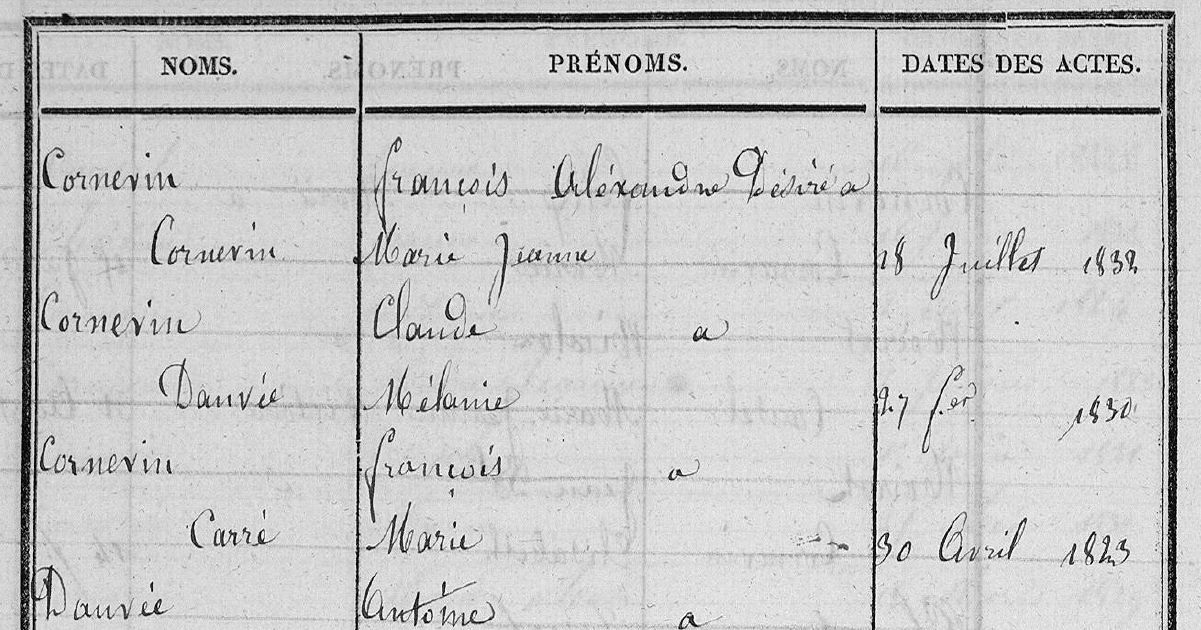 NOMS. PRÉNOMS. DATES DES ACTES.
Cornevin françois Aléxandre Désiré a
Cornevin Marie Jeanne 18 Juillet 1832
Cornevin Claude a
Dauvée Mélanie 27 f.er 1830
Cornevin françois a
Carré Marie 30 Avril 1823
Dauvée Antoine a